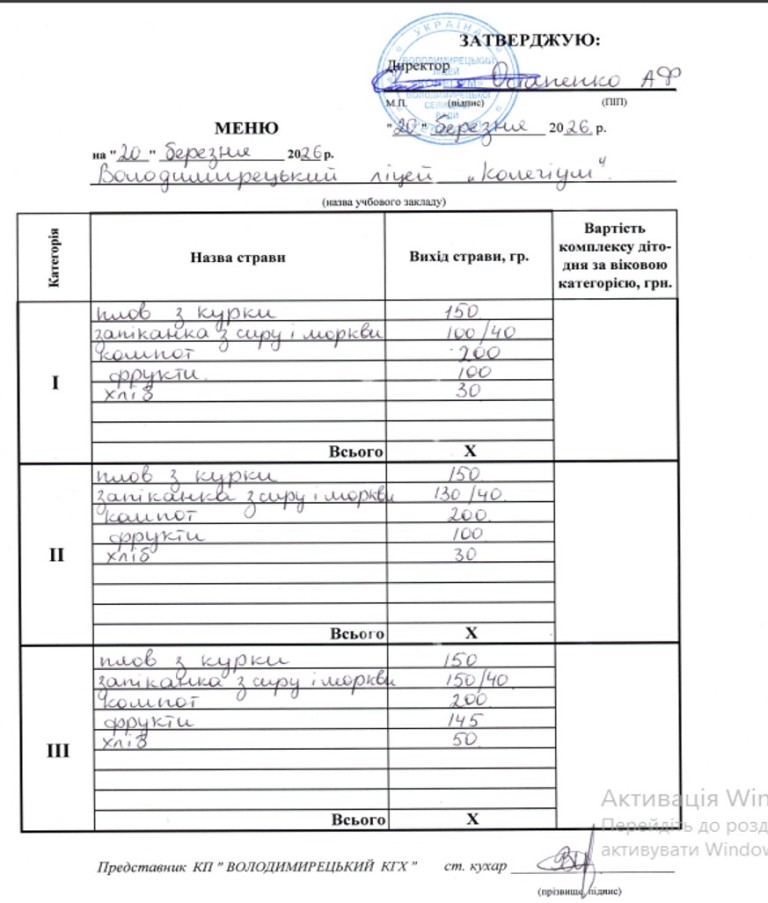 УКРАЇНА
ЗАТВЕРДЖУЮ:
Директор Остапенко А Ф
М.П. (підпис) (ПІП)
МЕНЮ
"20" березня 2026 р.
на "20" березня 2026 р.
Володимирецький ліцей „Колегіум"
(назва учбового закладу)
Категорія Назва страви Вихід страви, гр. Вартість комплексу діто-дня за віковою категорією, грн.
I
плов з курки 150
запіканка з сиру і моркви 100/40
компот 200
фрукти 100
хліб 30
Всього X
II
плов з курки 150
запіканка з сиру і моркви 130/40
компот 200
фрукти 100
хліб 30
Всього X
III
плов з курки 150
запіканка з сиру і моркви 150/40
компот 200
фрукти 145
хліб 50
Всього X
Представник КП " ВОЛОДИМИРЕЦЬКИЙ КГХ " ст. кухар
(прізвище, підпис)
Активація Win
Перейдіть до розд
активувати Window